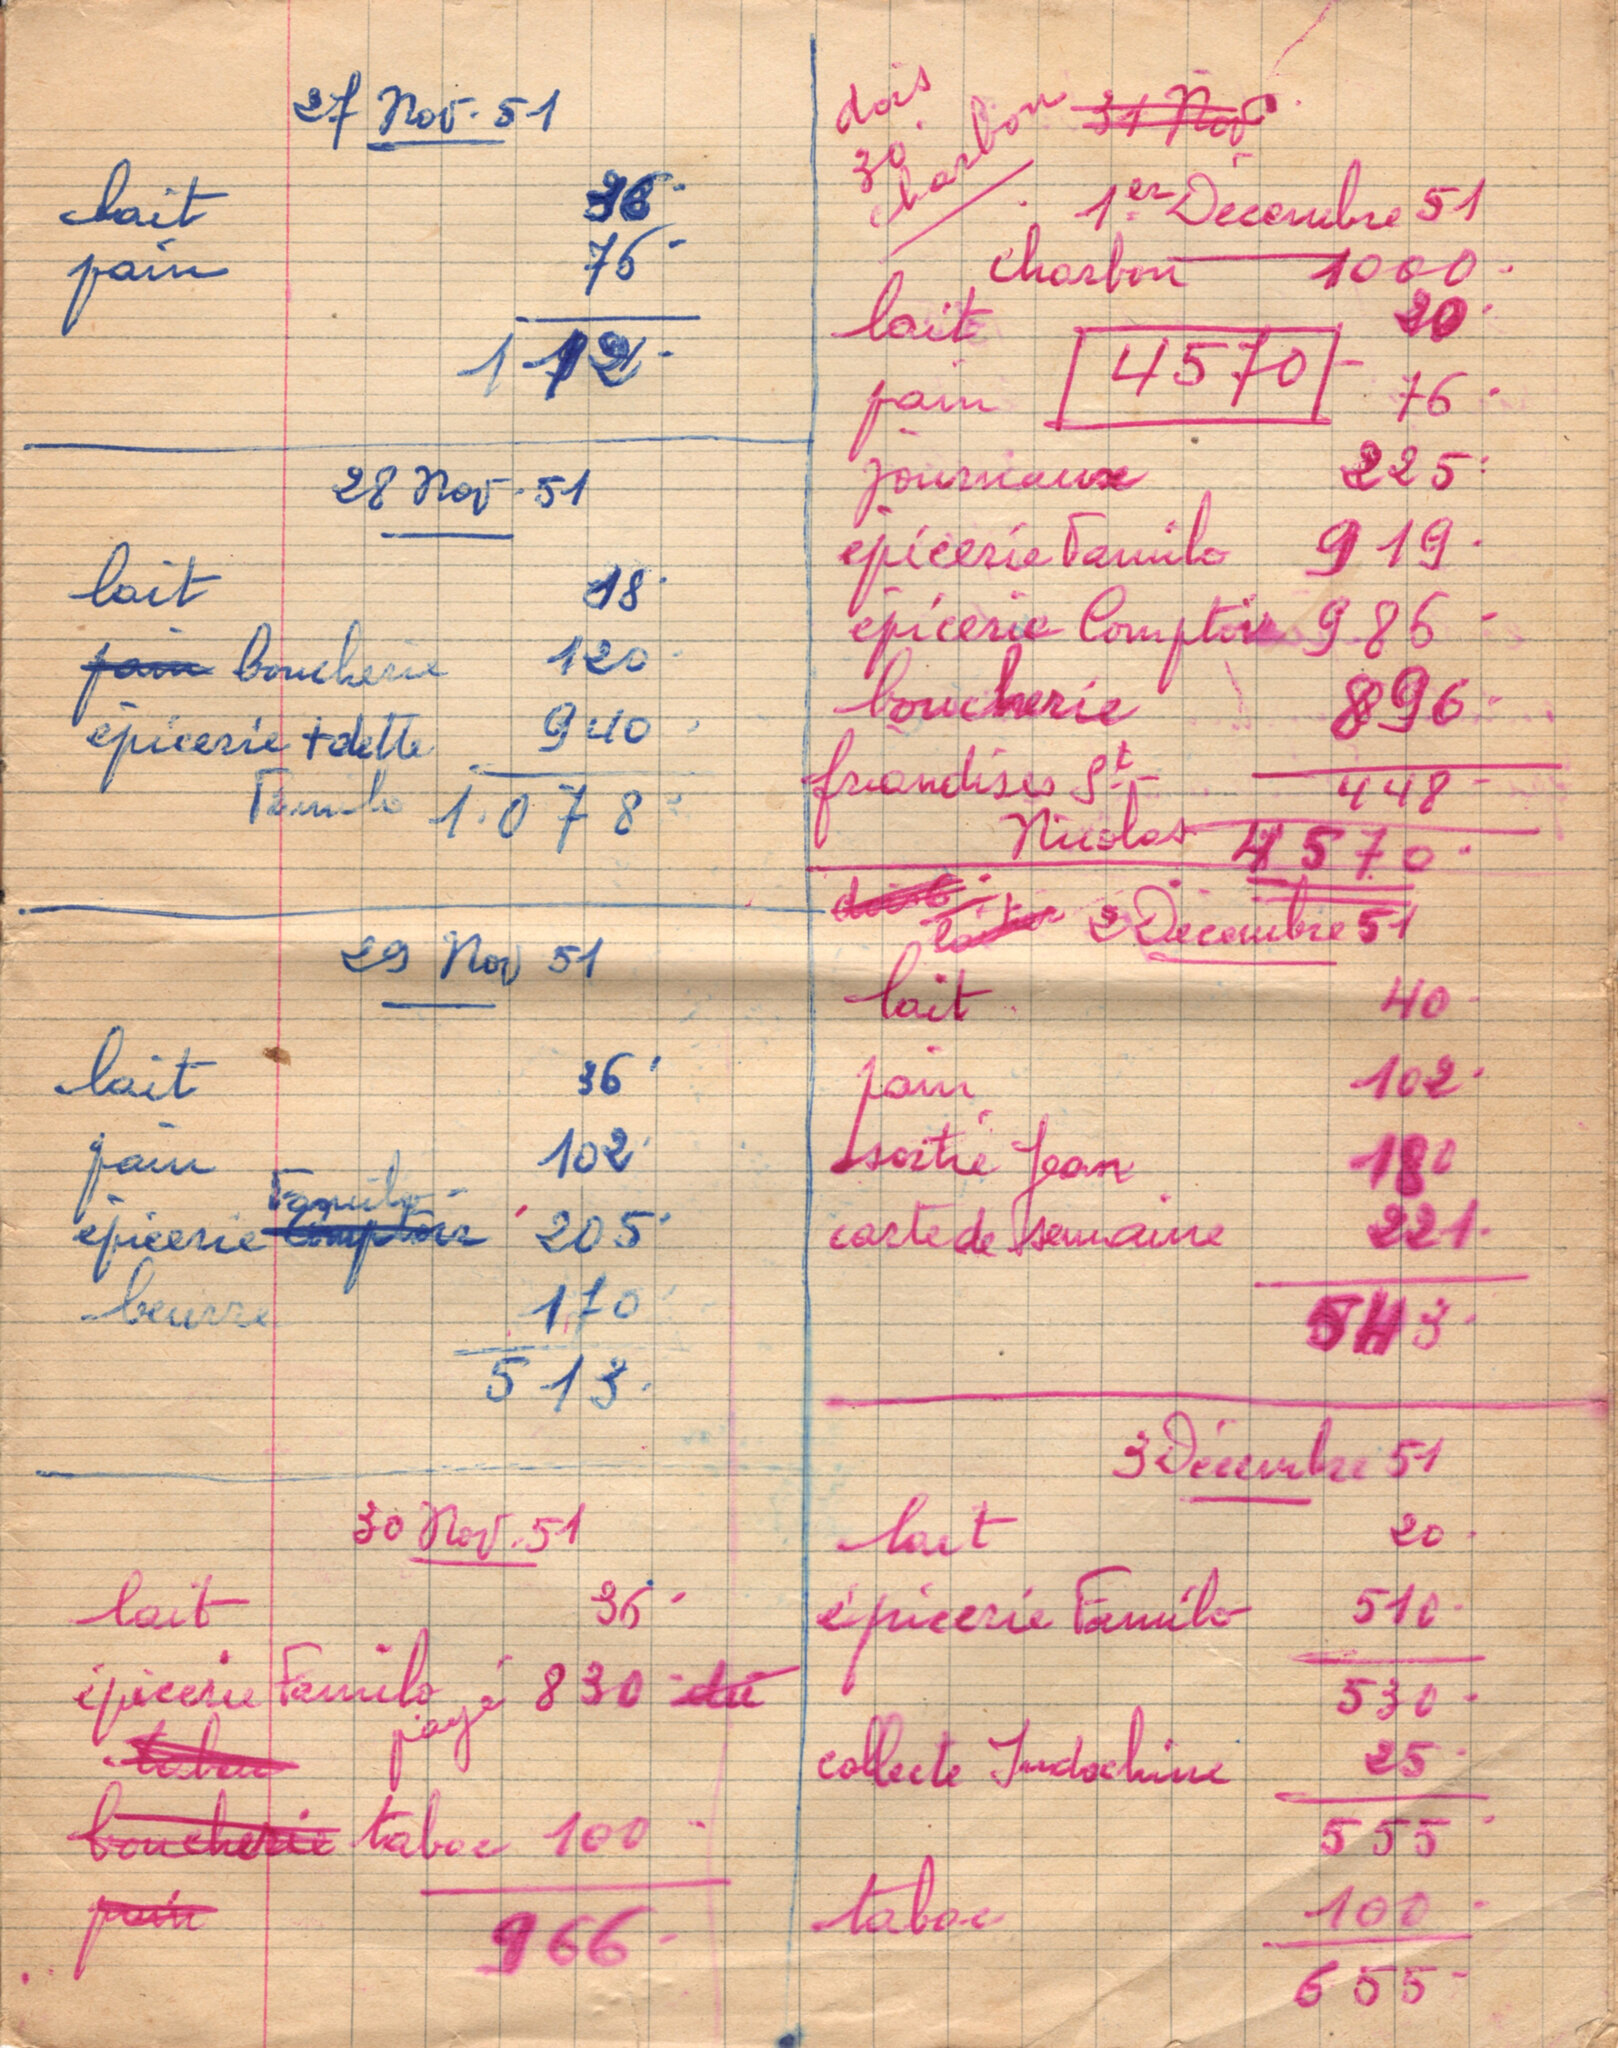 27 Nov. 51
lait 36
pain 76
112
28 Nov. 51
lait 18
pain boucherie 120
épicerie + dette 940
Familo 1.078
29 Nov 51
lait 36
pain 102
Familo
épicerie Comptoir 205
beurre 170
513
30 Nov. 51
lait 36
épicerie Familo payé 830 dû
tabac
boucherie tabac 100
pain
966
dois
30
charbon
31 Nov
1er Décembre 51
charbon 1000
lait 20
4570
pain 76
journaux 225
épicerie Familo 919
épicerie Comptoir 986
boucherie 896
friandises St 448
Nicolas 4570
2 Décembre 51
lait 40
pain 102
sortie Jean 180
carte de semaine 221
543
3 Décembre 51
lait 20
épicerie Familo 510
530
collecte Indochine 25
555
tabac 100
655